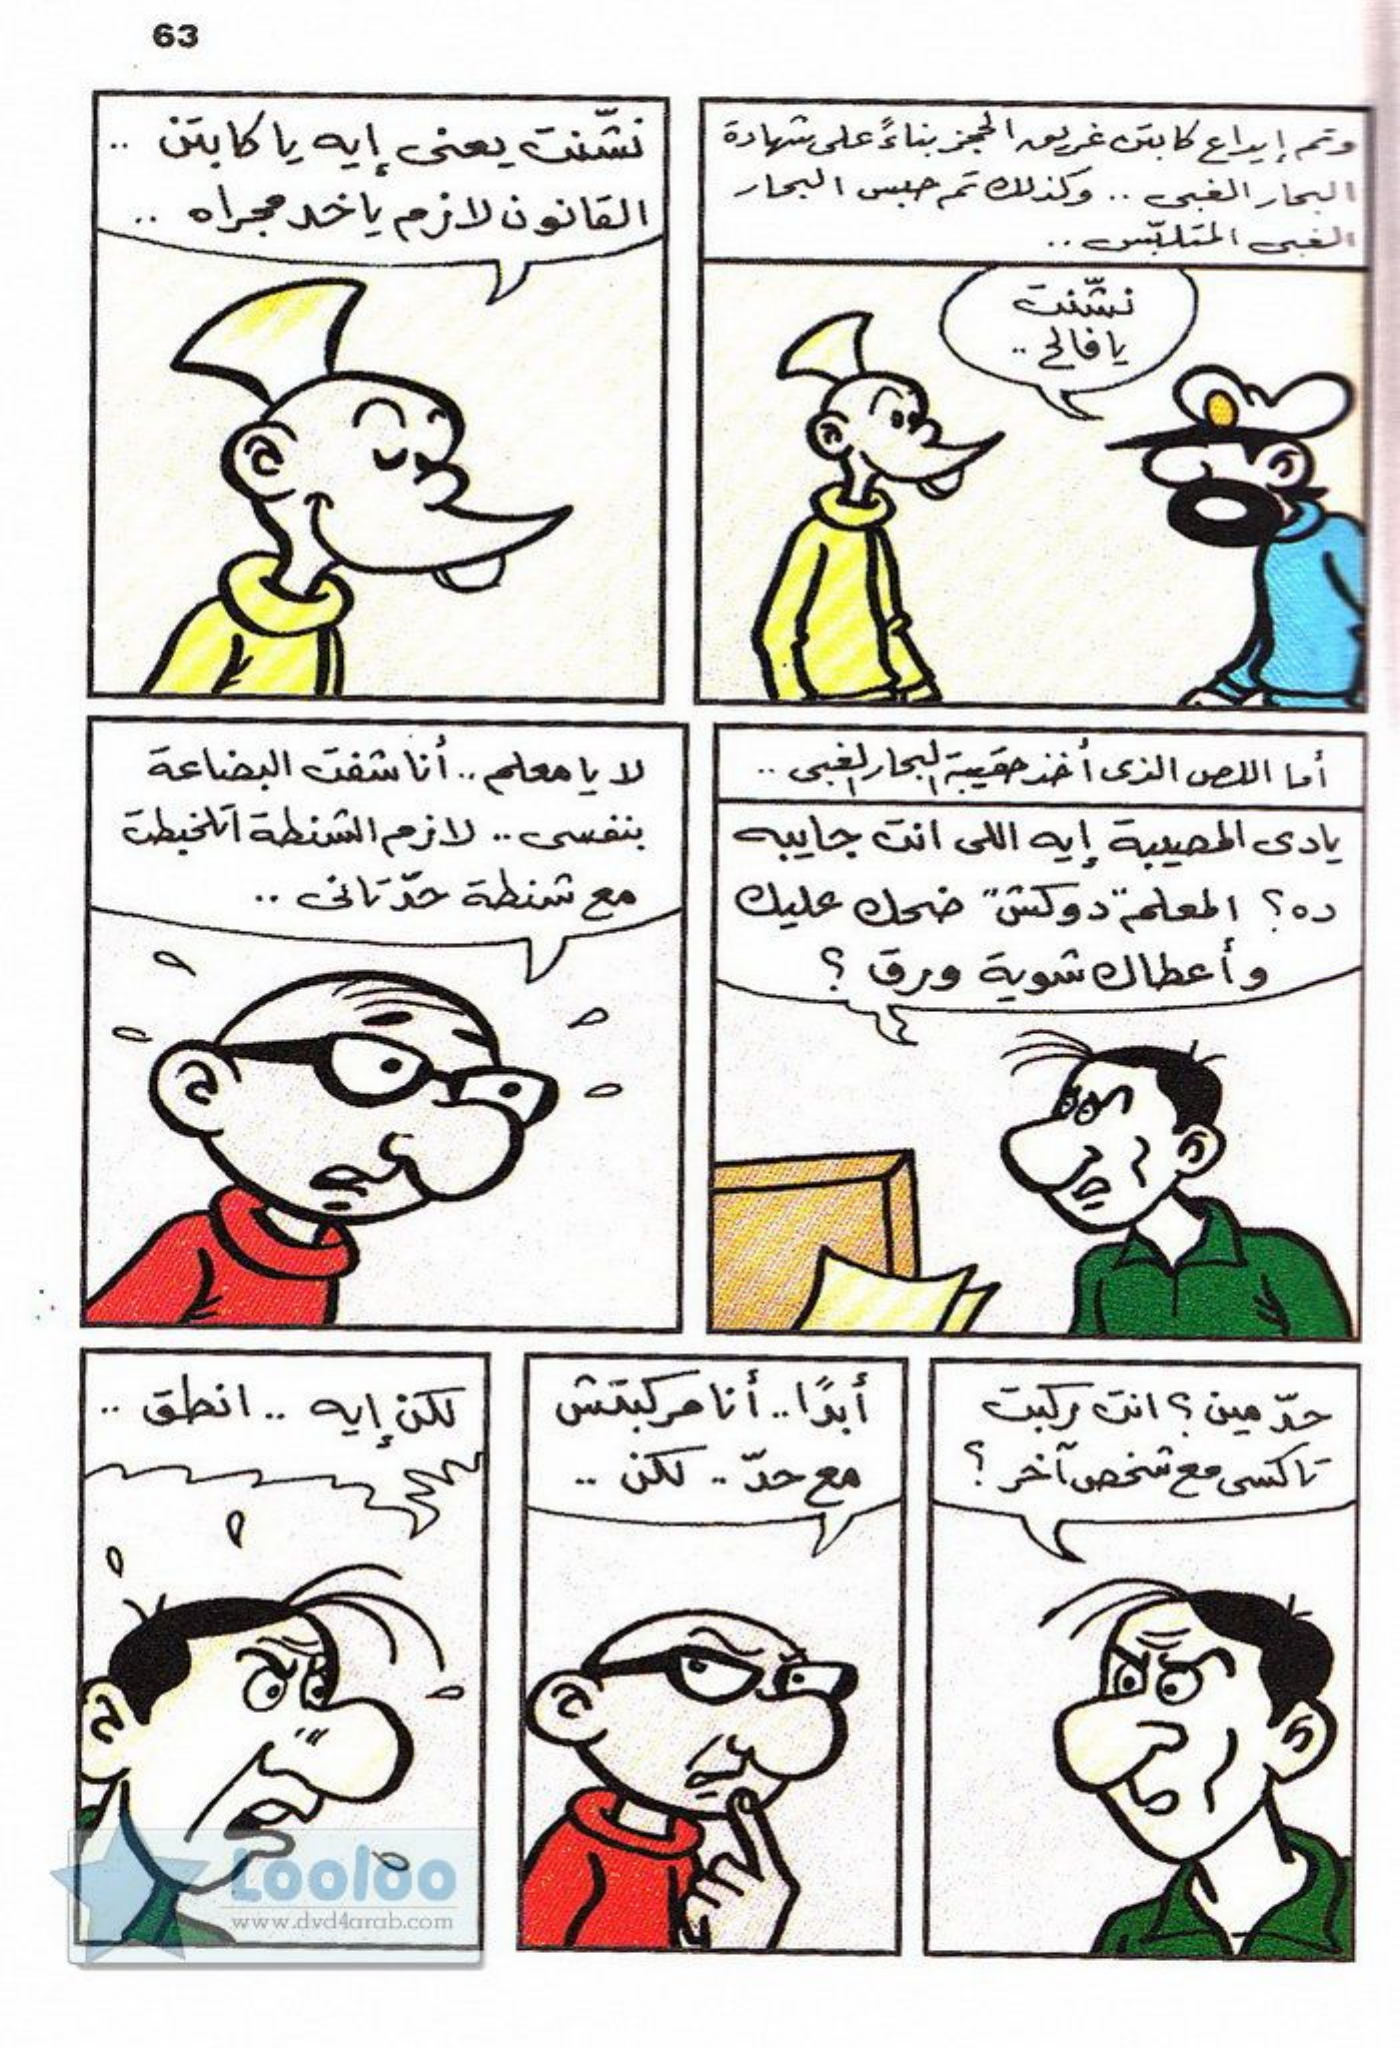 63
وتم إيداع كابتن غريق الحجز بناءً على شهادة
البحار الغبى .. وكذلك تم حبس البحار
الغبى المتلبّس ..
نشّنت
يا فالح ..
نشّنت يعنى إيه يا كابتن ..
القانون لازم ياخد مجراه ..
أما اللص الذى أخذ حقيبة البحار الغبى ..
يادى المصيبة إيه اللى انت جايبه
ده؟ المعلم "دوكش" ضحك عليك
وأعطاك شوية ورق ؟
لا يا معلم .. أنا شفت البضاعة
بنفسى .. لازم الشنطة اتلخبطت
مع شنطة حدّ تانى ..
حدّ مين ؟ انت ركبت
تاكسى مع شخص آخر ؟
أبدًا .. أنا مركبتش
مع حدّ .. لكن ..
لكن إيه .. انطق ..
Looloo
www.dvd4arab.com